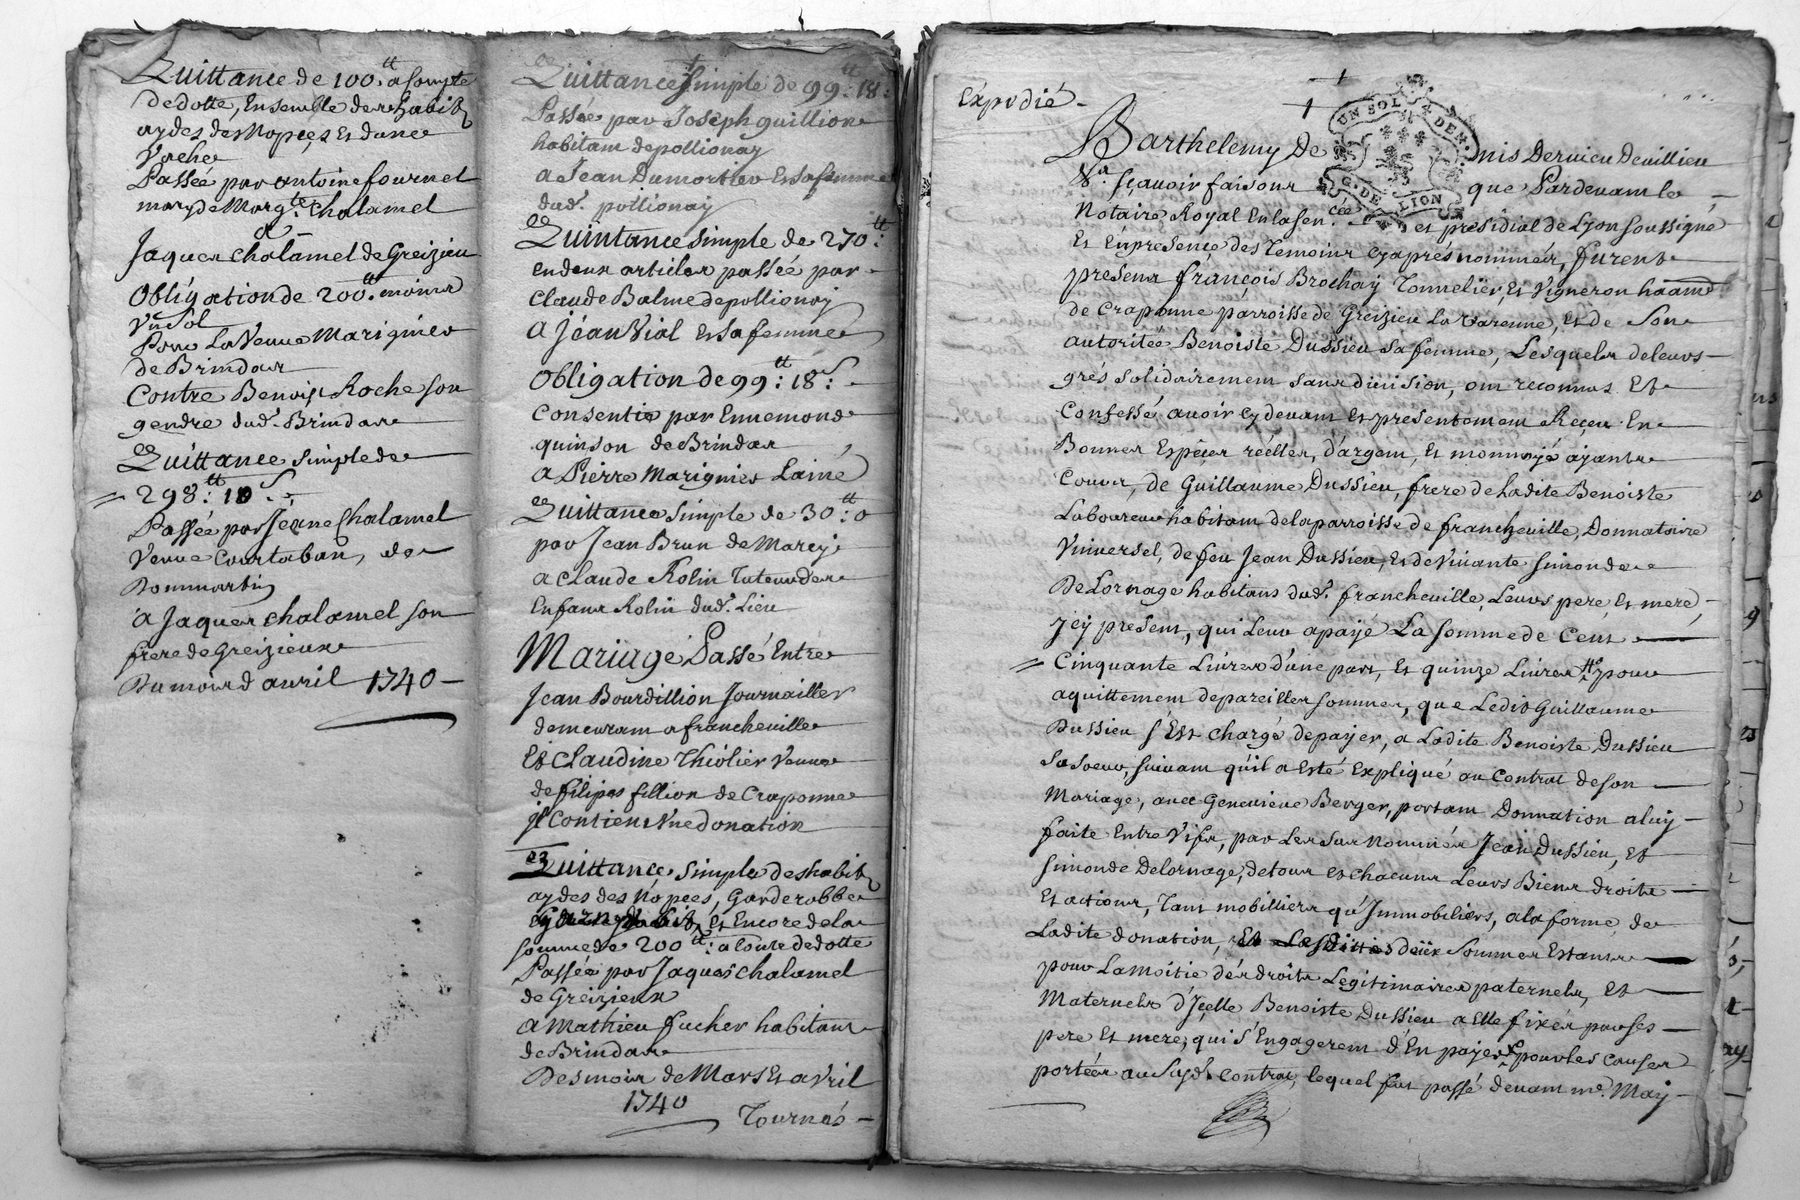 Quittance de 100.tt a Compte
de dotte, Ensemble des habits
aydes des Nopces Et d'une
Vache
Passée par antoine fournel
mary de Margte. Chalamel
a
Jaques Chalamel de Greizieu
Obligation de 200.tt moins
Vn Sol
Pour La Veuve Marignier
de Brindas
Contre Benoist Roche son
gendre dud. Brindas
Quittance simple de
298.tt 10.s
Passée par Jeane Chalamel
Veuve Courtaban, de
Dommartin
a Jaques chalamel son
frere de Greizieux
Du mois d'avril 1740
Quittance simple de 99.tt 18.
Passée par Joseph guillion
habitant de pollionay
a Jean Dumortier Et sa femme
dud. pollionay
Quintance simple de 270.tt
en deux articles passée par
Claude Balme de pollionay
a Jean Vial Et sa femme
Obligation de 99.tt 18.s
Consentie par Ennemond
quinson de Brindas
a Pierre Marignier Lainé
Quittance simple de 30.tt 0
par Jean Brun de Marcy
a Claude Rolin Tuteur des
Enfans Rolin dud. Lieu
Mariage Passé Entre
Jean Bourdillion Journaillier
demeurant a francheville
Et Claudine Thiolier Veuve
de filipes fillion de Craponne
jl Contient Vne donation
Quittance simple des habits
aydes des Nopces, Garderobbe
Et Encore de la
somme de 200.tt a Conte de dotte
Passée par Jaques Chalamel
de Greizieux
a Mathieu fucher habitant
de Brindas
Des mois de Mars Et avril
1740
Tournés
Expedié
Barthelemy De nis Dervieu de Villieu
Sçavoir faisons que Pardevant le
UN SOL LA DEM.
G. DE LION
Notaire Royal En la senc.ée et presidial de Lyon soussigné
Et En presence des Temoins Cy aprés nommés, furent
presens françois Brochay Tonnelier, Et Vigneron habitant
de Craponne parroisse de Greizieu La Varenne, Et de Son
autoritée Benoiste Dussieu sa femme, Lesquels de leurs
grés solidairement sans division, ont reconnus Et
Confessé avoir cy devant Et presentement Reçeu En
Bonnes Especes réelles, d'argent, Et monnoye ayants
Cours, de Guillaume Dussieu, frere de Ladite Benoiste
Laboureur habitant de la parroisse de francheville, Donnataire
Vniversel, de feu Jean Dussieu, Et de Vivante Simonde
De Lornage habitans dud. francheville, Leurs pere Et mere,
jcy present, qui Leur a payé La somme de Cent
Cinquante Livres d'une part, Et quinze Livres pour
aquittement de pareilles sommes, que Ledit Guillaume
Dussieu s'Est chargé de payer, a Ladite Benoiste Dussieu
Sa soeur, suivant qu'il a Esté Expliqué au Contrat de son
Mariage, avec Genevieve Berger, portant Donnation a luy
faite Entre Vifs, par Les sus Nommés Jean Dussieu, Et
Simonde Delornage, de tous Et chacuns Leurs Biens droits
Et actions, Tant mobilliers qu'Jmmobiliers, a la forme, de
Ladite donation, deux Sommes Estants
pour La moitie des droits Legitimaires paternels, Et
Maternels d'Jçelle Benoiste Dussieu a Elle fixés par ses
pere Et mere, qui s'Engagerent d'En payer pour les Causes
portées au susd. Contrat, lequel fut passé devant me. May